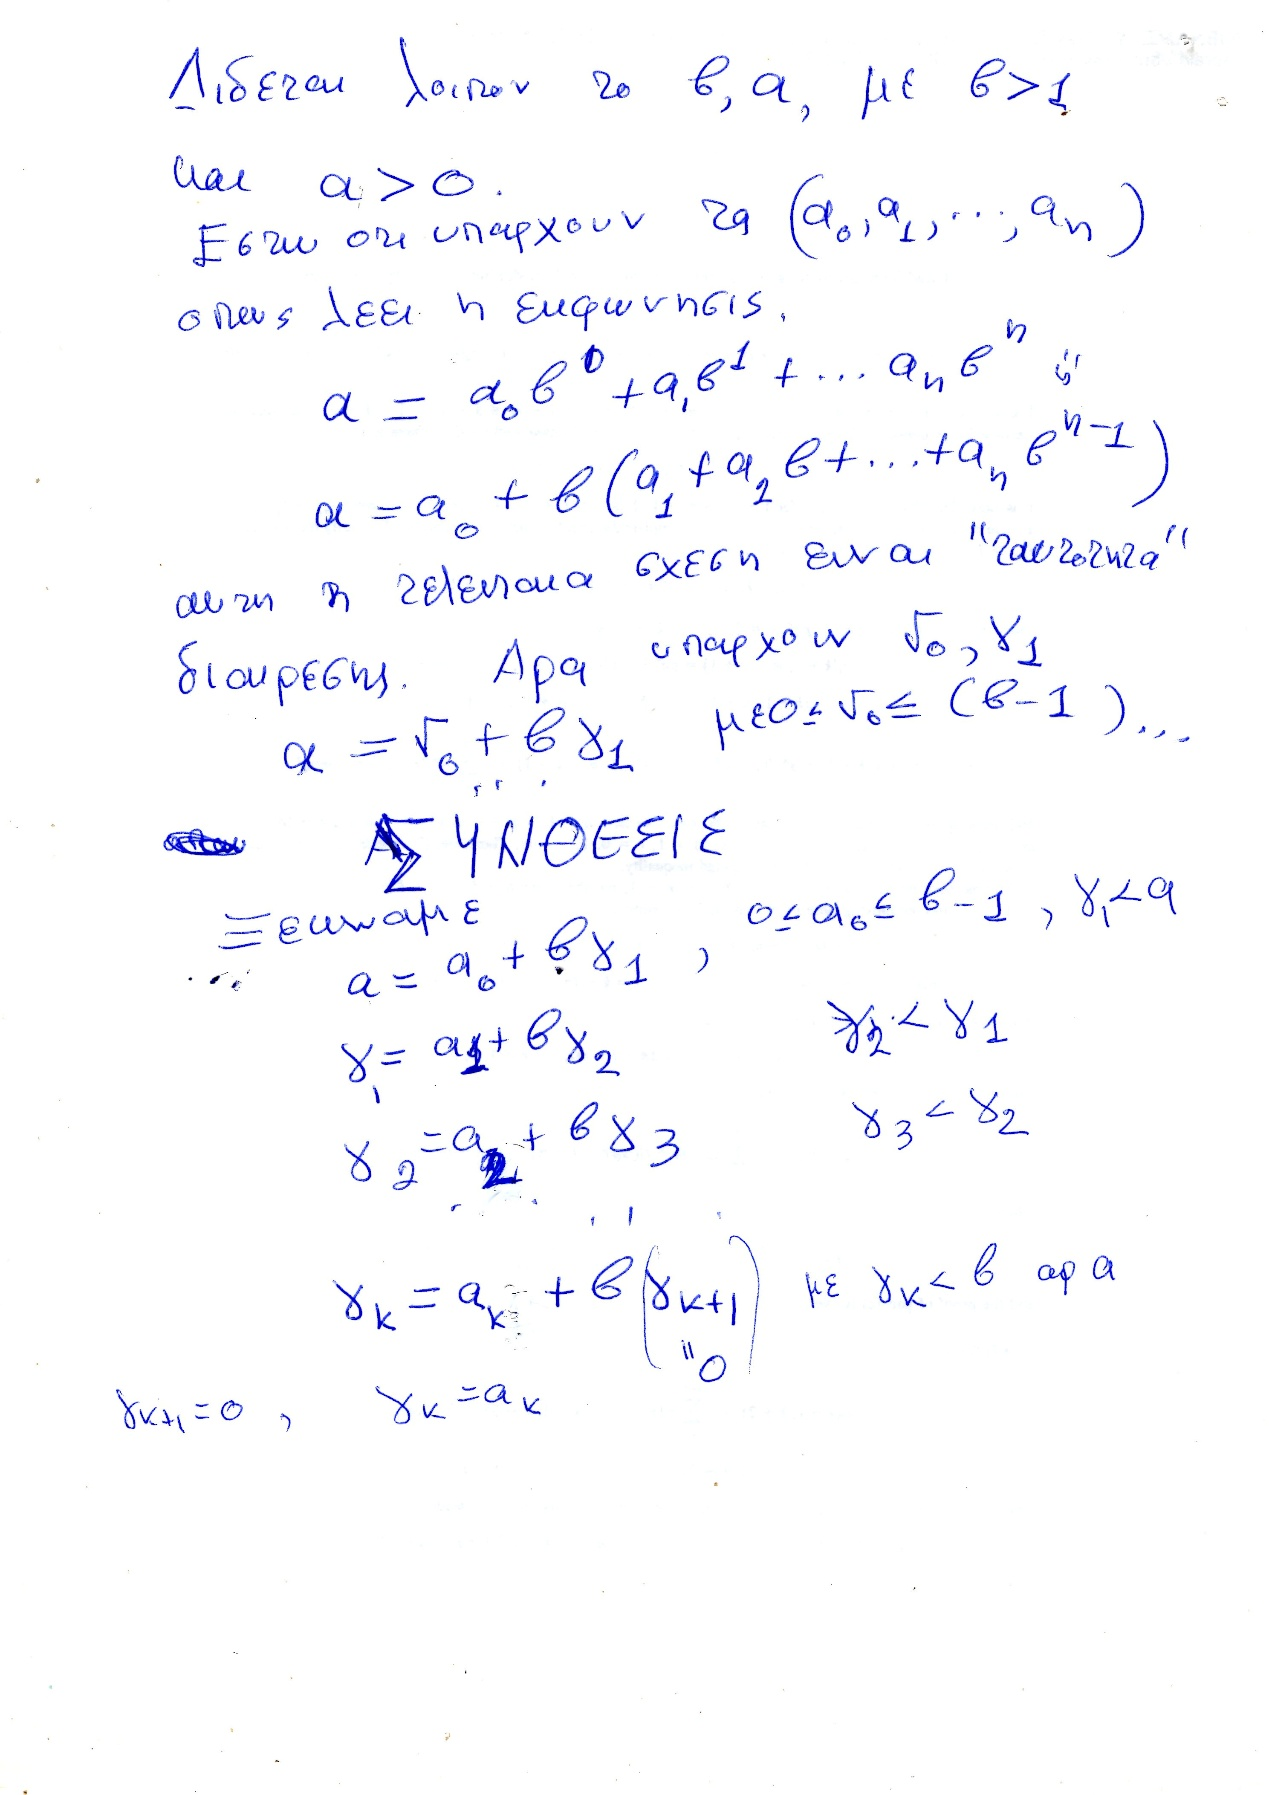 Διδεται λοιπον το β, α, με β>1
και α>0.
Εστω οτι υπαρχουν τα (α₀, α₁, ..., αₙ)
οπως λεει η εκφωνησις.
α = α₀β⁰ + α₁β¹ + ... αₙβⁿ ή
α = α₀ + β(α₁ + α₂β + ... + αₙβⁿ⁻¹)
αυτη η τελευταια σχεση ειναι "ταυτοτητα"
διαιρεσης. Αρα υπαρχουν √₀, γ₁
α = √₀ + βγ₁ με 0 ≤ √₀ ≤ (β-1)...
ΣΥΝΘΕΣΙΣ
Ξεκιναμε
α = α₀ + βγ₁, 0 ≤ α₀ ≤ β-1, γ₁<α
γ₁ = α₁ + βγ₂ γ₂ < γ₁
γ₂ = α₂ + βγ₃ γ₃ < γ₂
γκ = ακ + β(γκ+1) με γκ < β αρα
"0
γκ+1 = 0, γκ = ακ